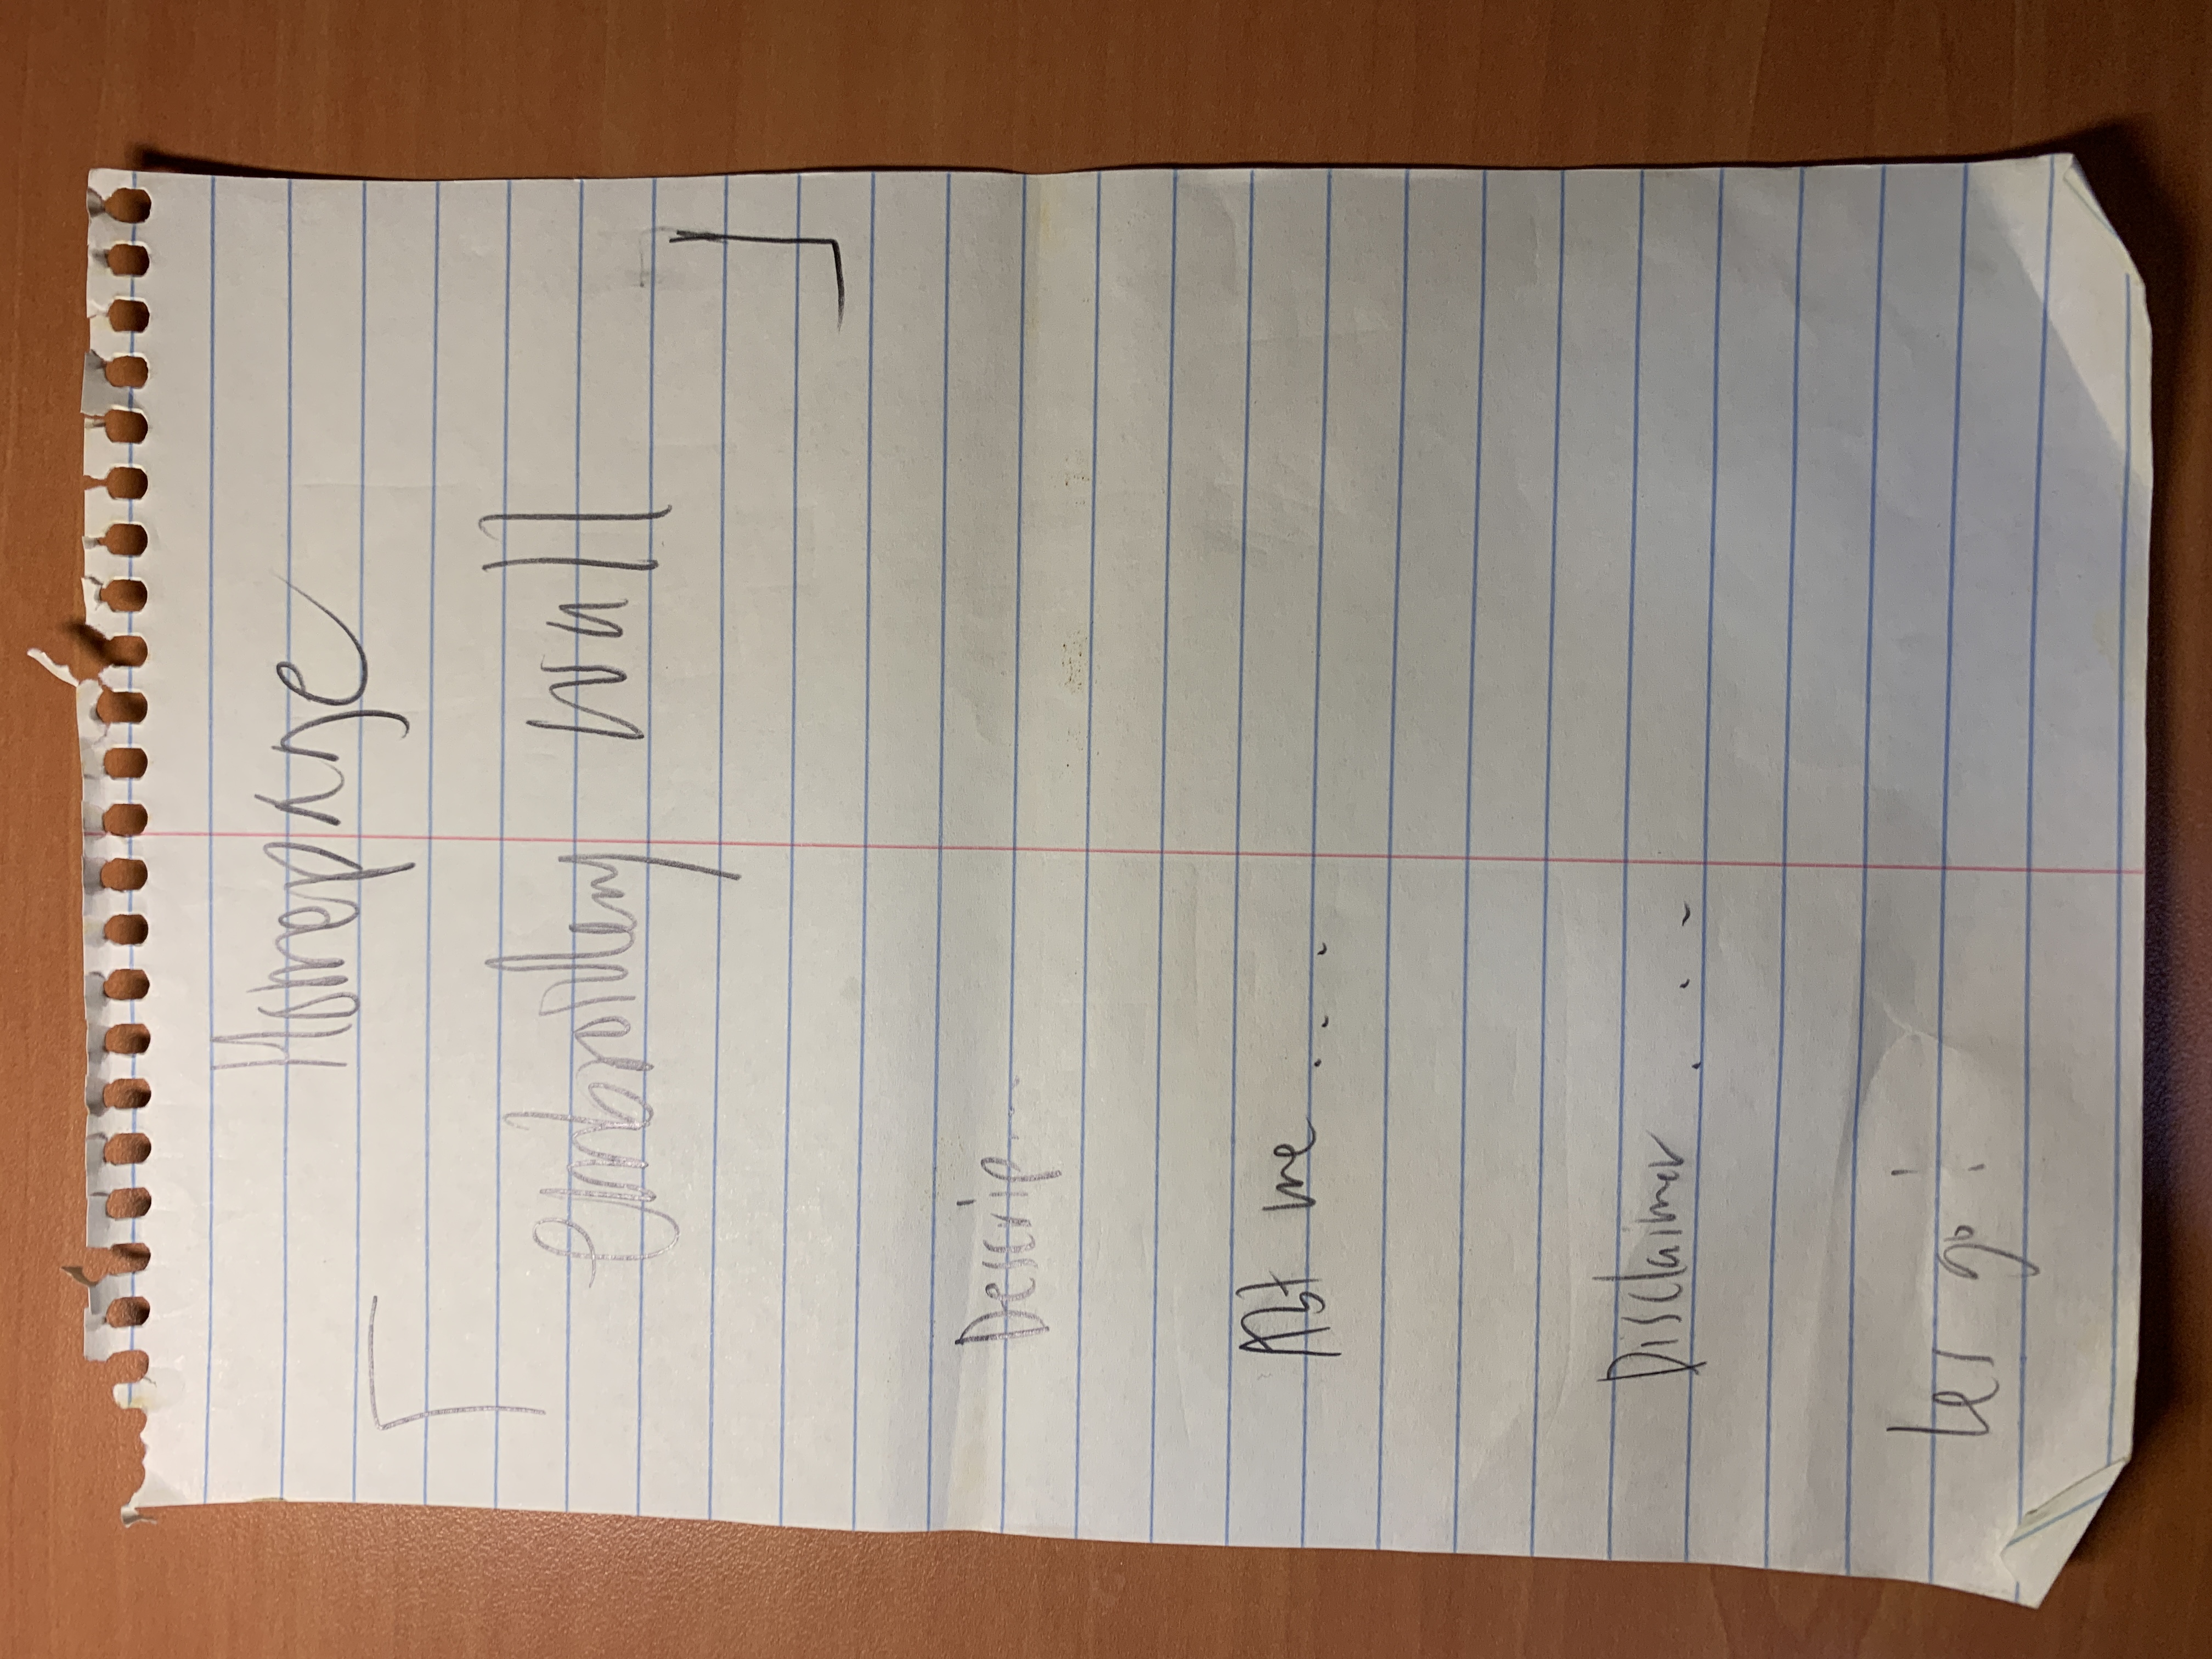 Homepage
embroidery wall
Descrip...
Abt me ...
Disclaimer ...
Les go!